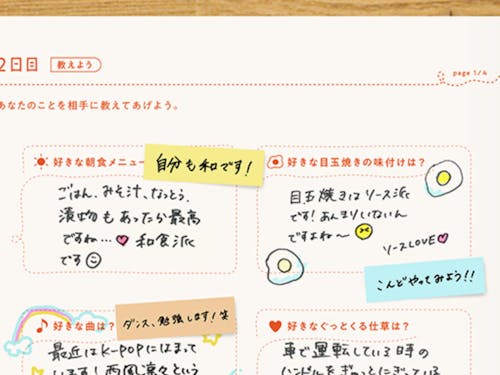 2日目 教えよう
page 1/4
あなたのことを相手に教えてあげよう。
好きな朝食メニュー
自分も和です!
ごはん、みそ汁、なっとう、
漬物もあったか最高
ですね…♥ 和食派
です
好きな目玉焼きの味付けは?
目玉焼きはソース派
です!あんまりいないん
ですよね〜
ソースLOVE♥
こんどやってみよう!!
好きな曲は?
ダンス、勉強します!笑
最近はK-POPにはまって
います!
という
好きなぐっとくる仕草は?
車で運転している時の
ハンドルをぎゅっとにぎっている